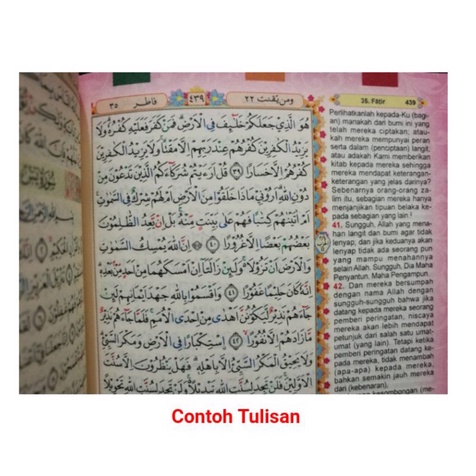 فاطر ٣٥
٤٣٩
ومن يقنت ٢٢
هُوَ الَّذِيْ جَعَلَكُمْ خَلٰۤىِٕفَ فِى الْاَرْضِۗ فَمَنْ كَفَرَ فَعَلَيْهِ كُفْرُهٗۗ وَلَا
يَزِيْدُ الْكٰفِرِيْنَ كُفْرُهُمْ عِنْدَ رَبِّهِمْ اِلَّا مَقْتًاۚ وَلَا يَزِيْدُ الْكٰفِرِيْنَ
كُفْرُهُمْ اِلَّا خَسَارًا ٣٩ قُلْ اَرَءَيْتُمْ شُرَكَاۤءَكُمُ الَّذِيْنَ تَدْعُوْنَ مِنْ
دُوْنِ اللّٰهِۗ اَرُوْنِيْ مَاذَا خَلَقُوْا مِنَ الْاَرْضِ اَمْ لَهُمْ شِرْكٌ فِى السَّمٰوٰتِۚ
اَمْ اٰتَيْنٰهُمْ كِتٰبًا فَهُمْ عَلٰى بَيِّنَتٍ مِّنْهُۚ بَلْ اِنْ يَّعِدُ الظّٰلِمُوْنَ
بَعْضُهُمْ بَعْضًا اِلَّا غُرُوْرًا ٤٠ اِنَّ اللّٰهَ يُمْسِكُ السَّمٰوٰتِ
وَالْاَرْضَ اَنْ تَزُوْلَا ەۚ وَلَىِٕنْ زَالَتَآ اِنْ اَمْسَكَهُمَا مِنْ اَحَدٍ مِّنْۢ بَعْدِهٖۗ
اِنَّهٗ كَانَ حَلِيْمًا غَفُوْرًا ٤١ وَاَقْسَمُوْا بِاللّٰهِ جَهْدَ اَيْمَانِهِمْ لَىِٕنْ
جَاۤءَهُمْ نَذِيْرٌ لَّيَكُوْنُنَّ اَهْدٰى مِنْ اِحْدَى الْاُمَمِۚ فَلَمَّا جَاۤءَهُمْ نَذِيْرٌ
مَّا زَادَهُمْ اِلَّا نُفُوْرًاۙ ٤٢ ۨاسْتِكْبَارًا فِى الْاَرْضِ وَمَكْرَ السَّيِّئِۗ
وَلَا يَحِيْقُ الْمَكْرُ السَّيِّئُ اِلَّا بِاَهْلِهٖۗ فَهَلْ يَنْظُرُوْنَ اِلَّا سُنَّتَ
الْاَوَّلِيْنَۚ فَلَنْ تَجِدَ لِسُنَّتِ اللّٰهِ تَبْدِيْلًا ەۚ وَلَنْ تَجِدَ لِسُنَّتِ اللّٰهِ تَحْوِيْلًا
35. Fāṭir 439
Perlihatkanlah kepada-Ku (bagi-
an) manakah dari bumi ini yang
telah mereka ciptakan; atau-
kah mereka mempunyai peran
serta dalam (penciptaan) langit;
atau adakah Kami memberikan
kitab kepada mereka sehingga
mereka mendapat keterangan-
keterangan yang jelas darinya?
Sebenarnya orang-orang za-
lim itu, sebagian mereka hanya
menjanjikan tipuan belaka ke-
pada sebagian yang lain.
41. Sungguh, Allah yang mena-
han langit dan bumi agar tidak
lenyap; dan jika keduanya akan
lenyap tidak ada seorang pun
yang mampu menahannya
selain Allah. Sungguh, Dia Maha
Penyantun, Maha Pengampun.
42. Dan mereka bersumpah
dengan nama Allah dengan
sungguh-sungguh bahwa jika
datang kepada mereka seorang
pemberi peringatan, niscaya
mereka akan lebih mendapat
petunjuk dari salah satu umat-
umat (yang lain). Tetapi ketika
pemberi peringatan datang ke-
pada mereka, tidak menambah
(apa-apa) kepada mereka,
bahkan semakin jauh mereka
dari (kebenaran),
Contoh Tulisan